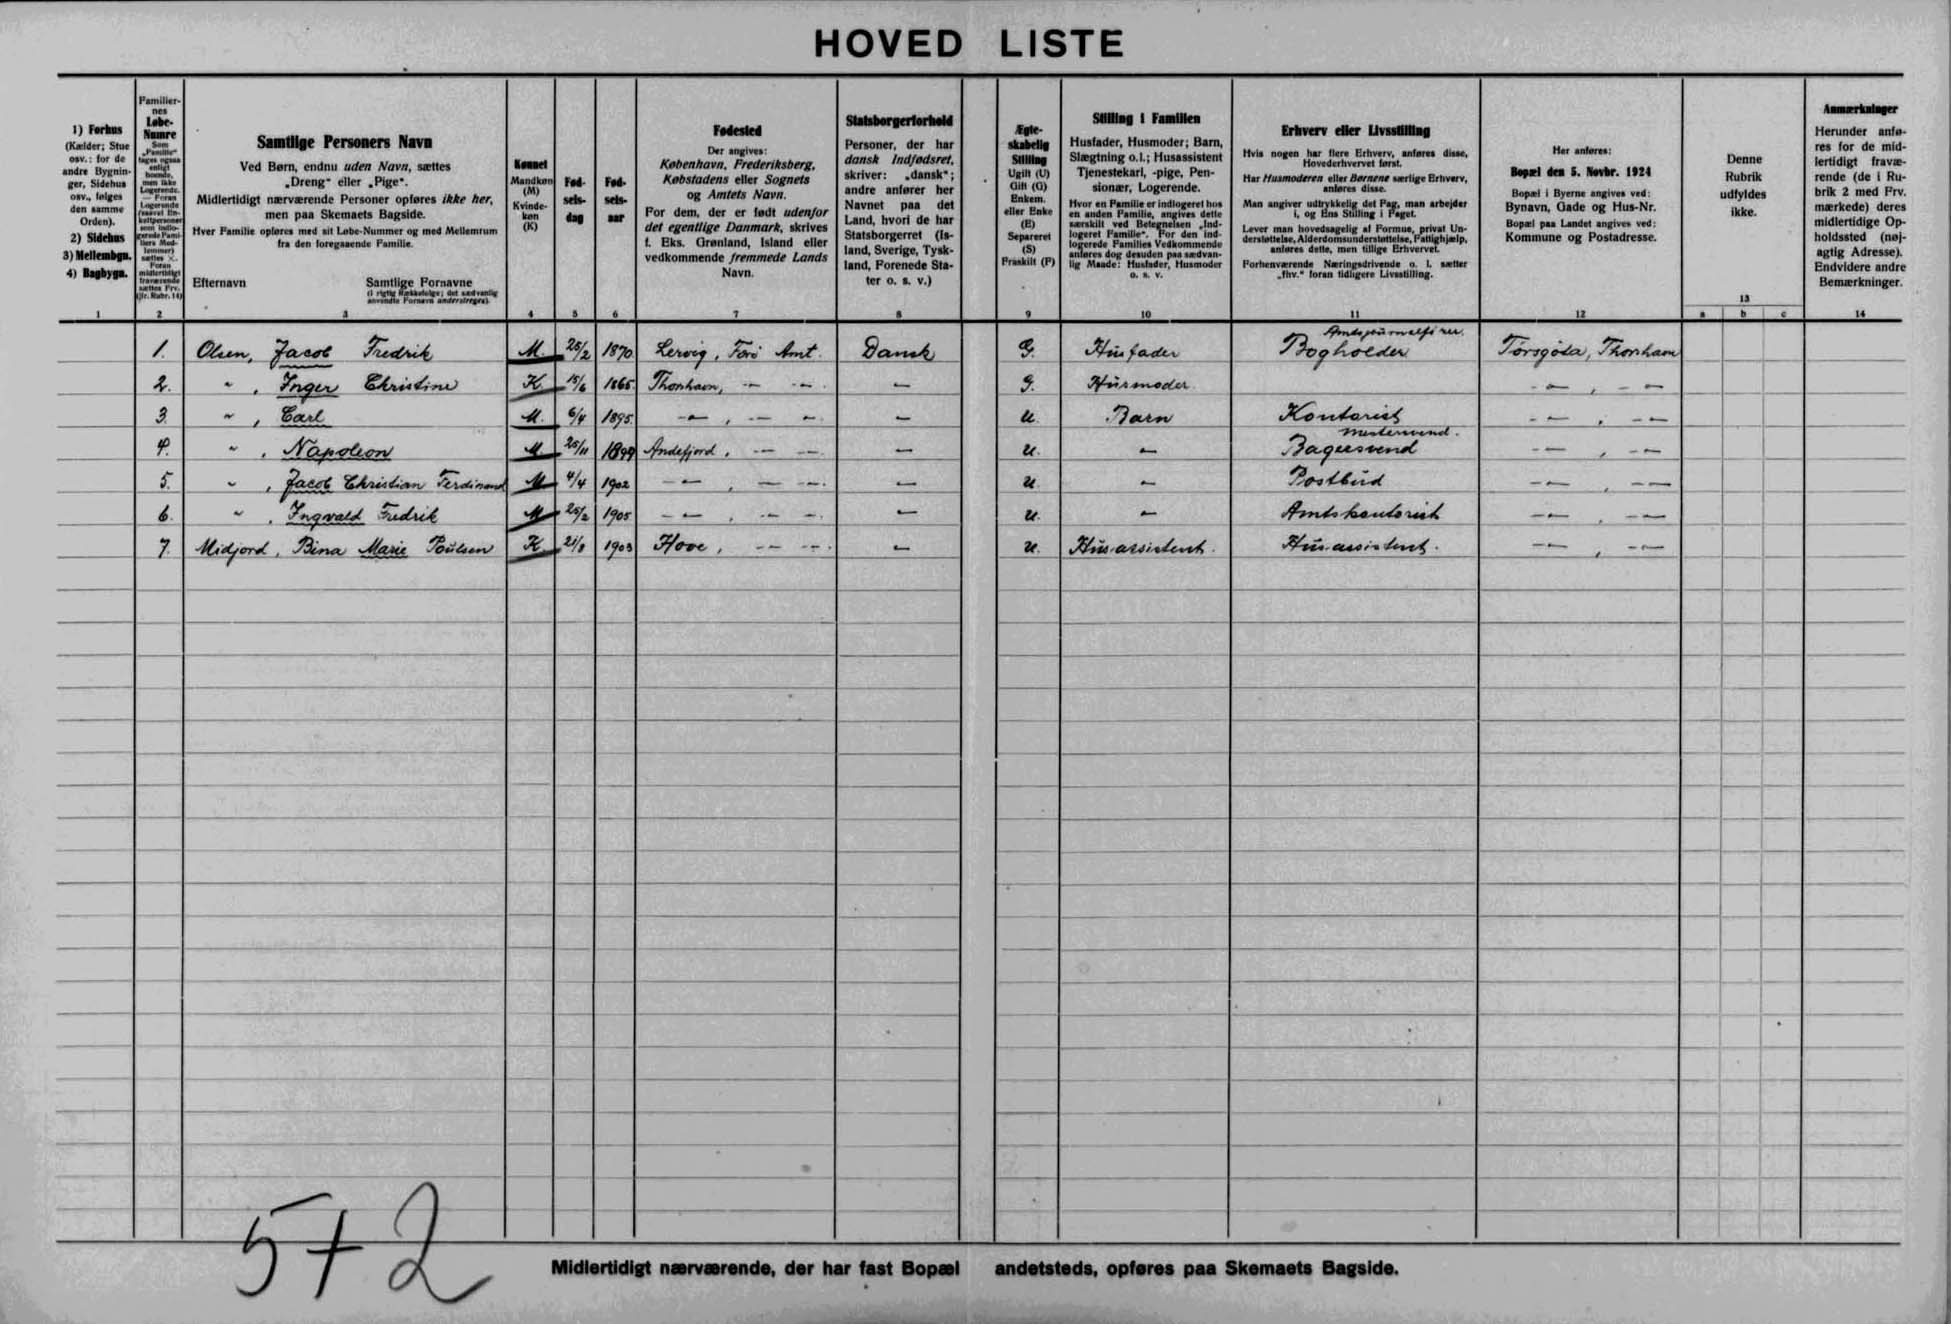 HOVED LISTE
1) Forhus
(Kælder; Stue
osv.: for de
andre Bygnin-
ger, Sidehus
osv., følges
den samme
Orden).
2) Sidehus
3) Mellembgn.
4) Bagbygn.
1
Familier-
nes
Løbe-
Numre
Som
„Familie“
tages ogsaa
enligt
boende,
men ikke
Logerende.
— Foran
Logerende
(saavel En-
keltpersoner
som indlo-
gerede Fami-
liers Med-
lemmer)
sættes ×.
Foran
midlertidigt
fraværende
sættes Frv.
(jfr. Rubr. 14)
2
Samtlige Personers Navn
Ved Børn, endnu uden Navn, sættes
„Dreng“ eller „Pige“.
Midlertidigt nærværende Personer opføres ikke her,
men paa Skemaets Bagside.
Hver Familie opføres med sit Løbe-Nummer og med Mellemrum
fra den foregaaende Familie.
Efternavn Samtlige Fornavne
(i rigtig Rækkefølge; det sædvanlig
anvendte Fornavn understreges).
3
Kønnet
Mandkøn
(M)
Kvinde-
køn
(K)
4
Fød-
sels-
dag
5
Fød-
sels-
aar
6
Fødested
Der angives:
København, Frederiksberg,
Købstadens eller Sognets
og Amtets Navn.
For dem, der er født udenfor
det egentlige Danmark, skrives
f. Eks. Grønland, Island eller
vedkommende fremmede Lands
Navn.
7
Statsborgerforhold
Personer, der har
dansk Indfødsret,
skriver: „dansk“;
andre anfører her
Navnet paa det
Land, hvori de har
Statsborgerret (Is-
land, Sverige, Tysk-
land, Forenede Sta-
ter o. s. v.)
8
Ægte-
skabelig
Stilling
Ugift (U)
Gift (G)
Enkem.
eller Enke
(E)
Separeret
(S)
Fraskilt (F)
9
Stilling i Familien
Husfader, Husmoder; Barn,
Slægtning o.l.; Husassistent
Tjenestekarl, -pige, Pen-
sionær, Logerende.
Hvor en Familie er indlogeret hos
en anden Familie, angives dette
særskilt ved Betegnelsen „Ind-
logeret Familie“. For den ind-
logerede Families Vedkommende
anføres dog desuden paa sædvan-
lig Maade: Husfader, Husmoder
o. s. v.
10
Erhverv eller Livsstilling
Hvis nogen har flere Erhverv, anføres disse,
Hovederhvervet først.
Har Husmoderen eller Børnene særlige Erhverv,
anføres disse.
Man angiver udtrykkelig det Fag, man arbejder
i, og Ens Stilling i Faget.
Lever man hovedsagelig af Formue, privat Un-
derstøttelse, Alderdomsunderstøttelse, Fattighjælp,
anføres dette, men tillige Erhvervet.
Forhenværende Næringsdrivende o. l. sætter
„fhv.“ foran tidligere Livsstilling.
11
Her anføres:
Bopæl den 5. Novbr. 1924
Bopæl i Byerne angives ved:
Bynavn, Gade og Hus-Nr.
Bopæl paa Landet angives ved:
Kommune og Postadresse.
12
Denne
Rubrik
udfyldes
ikke.
13
a b c
Anmærkninger
Herunder anfø-
res for de mid-
lertidigt fravæ-
rende (de i Ru-
brik 2 med Frv.
mærkede) deres
midlertidige Op-
holdssted (nøj-
agtig Adresse).
Endvidere andre
Bemærkninger.
14
Amtsjournalfører.
1. Olsen, Jacob Fredrik M. 25/2 1870. Lervig, Førø Amt. Dansk G. Husfader Bogholder Torsgöta, Thorshavn
2. " , Inger Christine K 15/6 1865. Thorshavn, — — — G. Husmoder. — , —
3. " , Carl M. 6/4 1895. — , — — — U. Barn Kontorist — , —
mestersvend.
4. " , Napoleon M 25/11 1899 Andefjord, — — — U. — Bagersvend — , —
5. " , Jacob Christian Ferdinand M 4/4 1902 — , — — — U. — Postbud — , —
6. " , Ingvald Fredrik M 25/2 1905 — , — — — U. — Amtskontorist — , —
7. Midjord, Bina Marie Poulsen K 21/8 1903 Hove, — — — U. Husassistent. Husassistent. — , —
5+2
Midlertidigt nærværende, der har fast Bopæl andetsteds, opføres paa Skemaets Bagside.